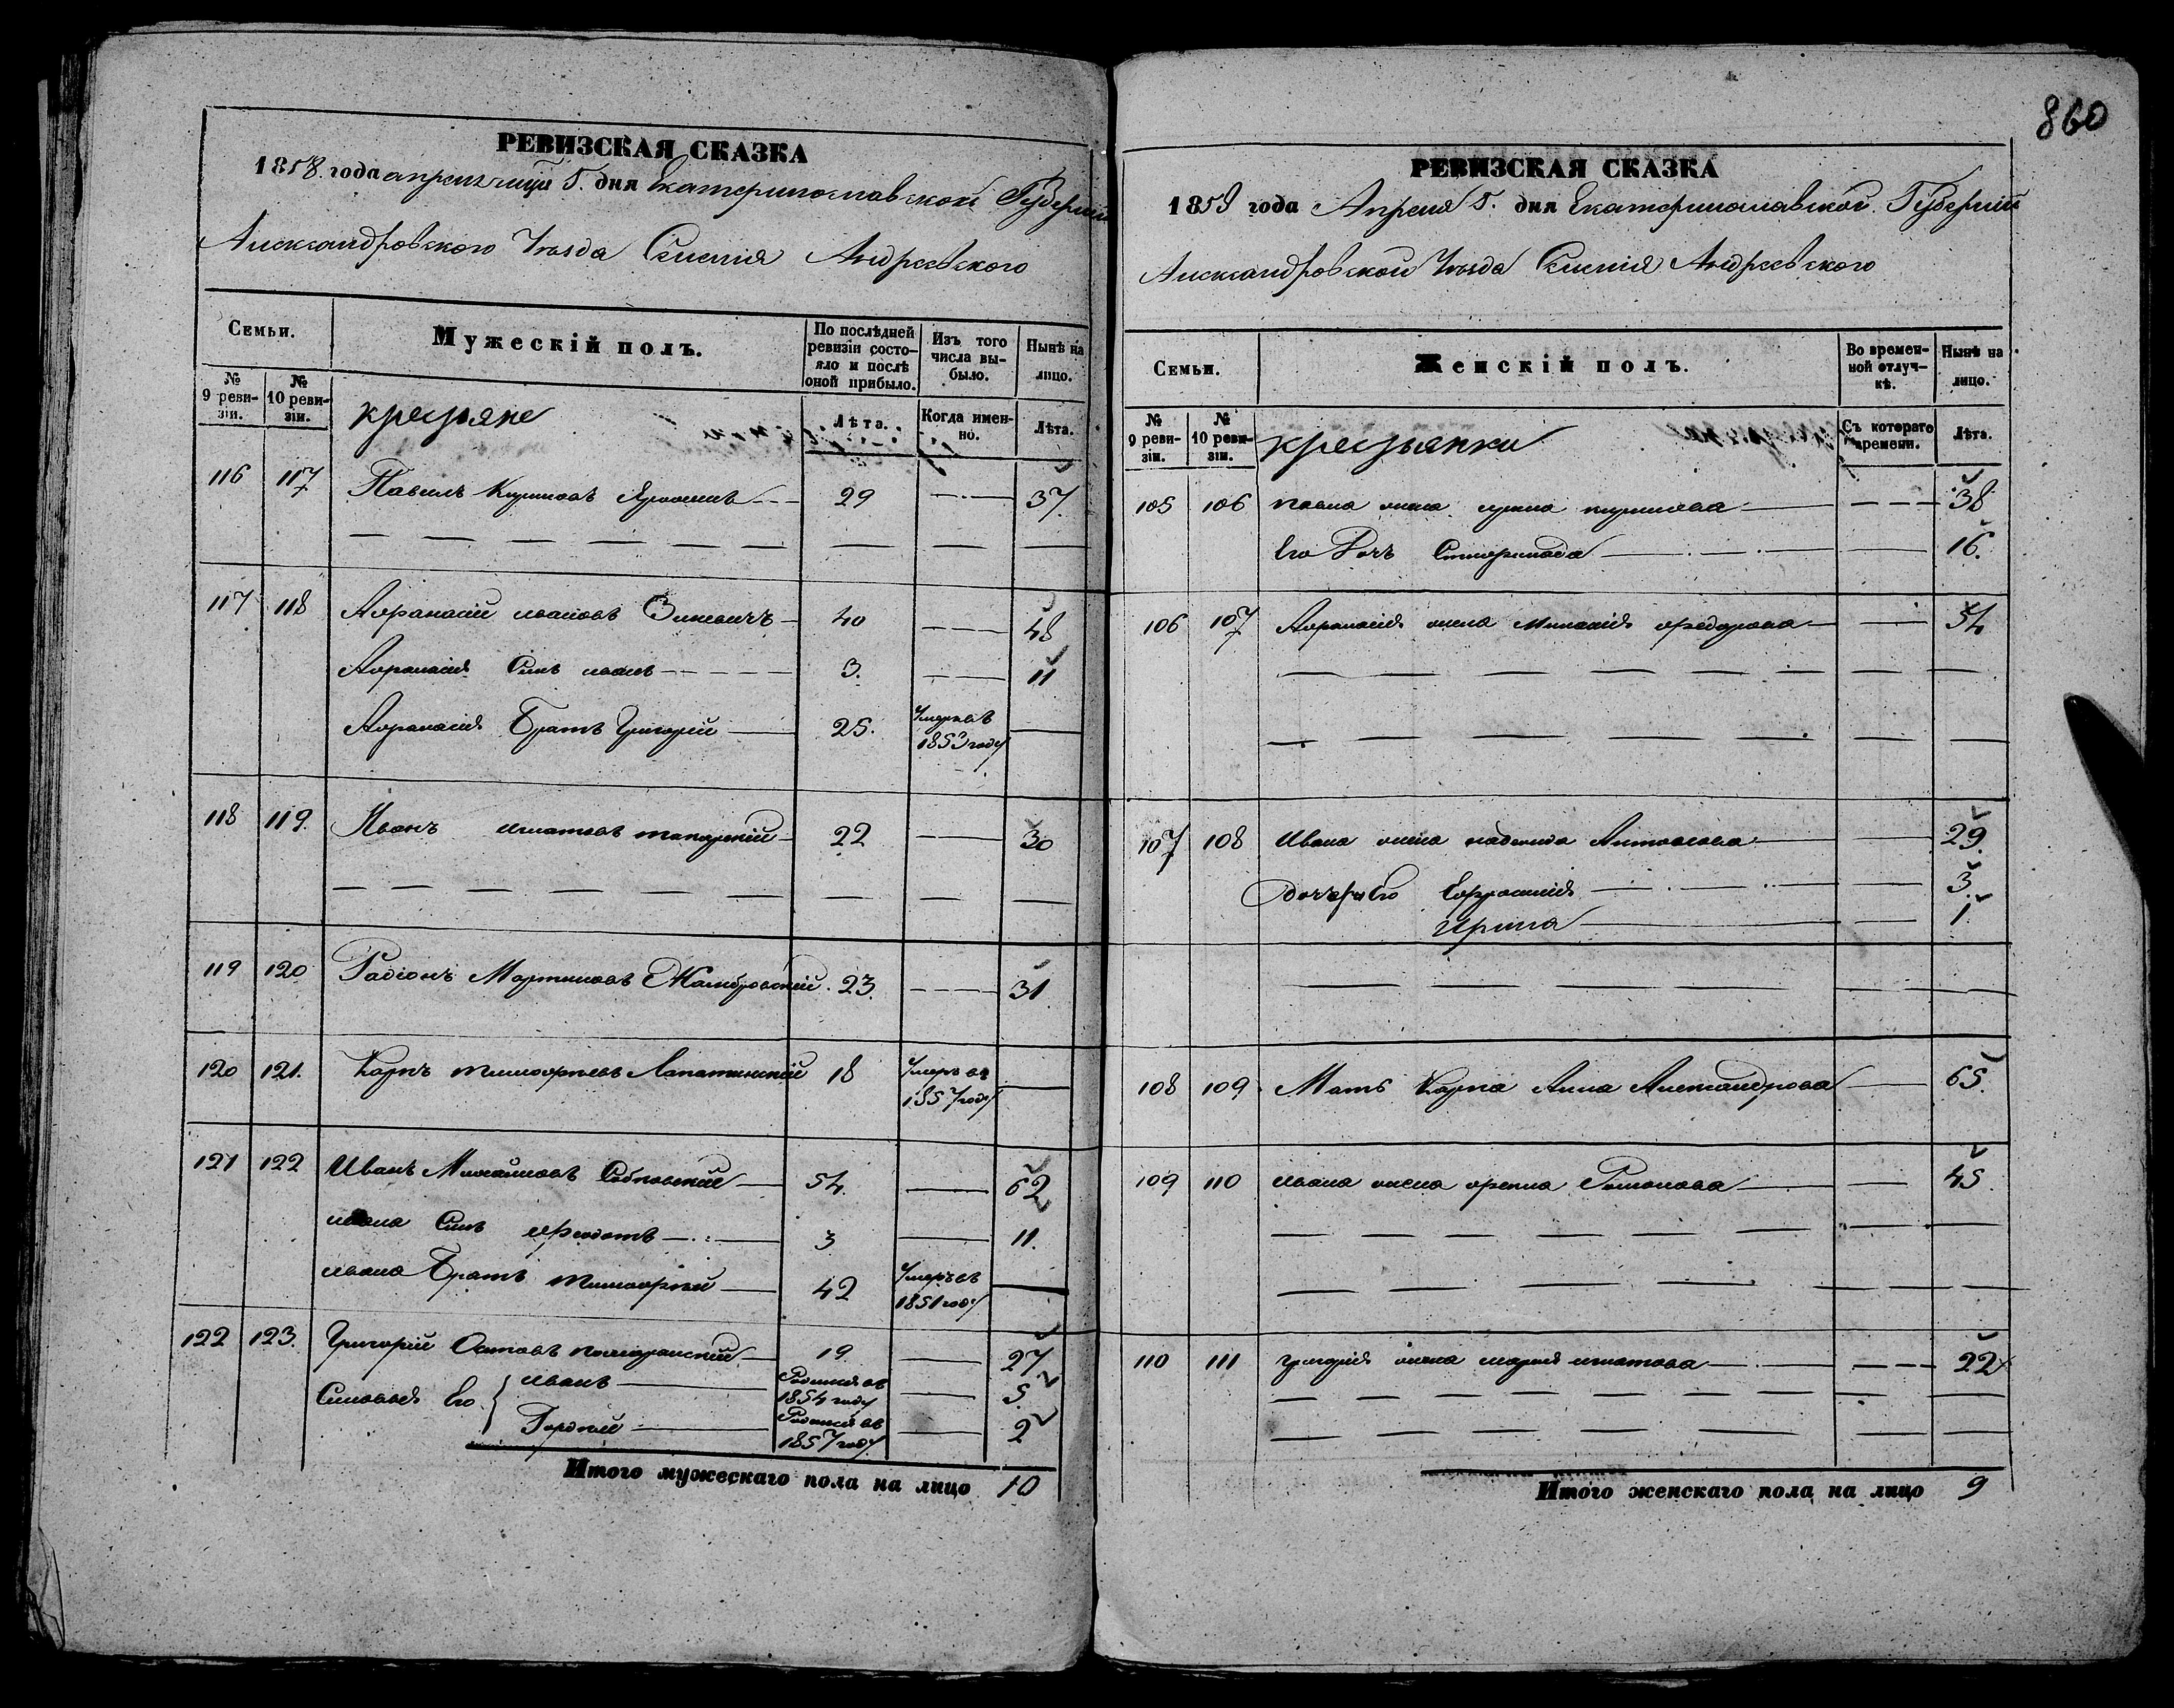 860
РЕВИЗСКАЯ СКАЗКА
1858. года апреля 5. дня Екатеринославской Губерніи
Александровского Уезда Селенія Андреевского
Семьи.
Мужескій полъ.
По послѣдней ревизіи состояло и послѣ оной прибыло.
Изъ того числа выбыло.
Нынѣ на лицо.
№ 9 ревизіи.
№ 10 ревизіи.
крестьяне
Лѣта.
Когда именно.
Лѣта.
116 117 Павелъ Кириловъ 29 37
117 118 Афанасій Ивановъ 40 48
Афанасія Синъ Иванъ 3. 11
Афанасія Братъ Григорій 25. Умеръ въ 1853 году
118 119. Иванъ Игнатовъ 22 30
119 120 Радіонъ Мартиновъ 23. 31
120 121. Карпъ Тимофѣевъ Лапатинскій 18 Умеръ въ 1857 году
121 122 Иванъ Михайловъ 54. 62
Ивана Синъ Федотъ 3 11.
Ивана Братъ Тимофѣй 42 Умеръ въ 1851 году
122 123. Григорій 19 27
Синовья Его Иванъ Родился въ 1854 году 5
Гордѣй Родился въ 1857 году 2
Итого мужескаго пола на лицо 10
РЕВИЗСКАЯ СКАЗКА
1858 года Апреля 5. дня Екатеринославской Губерніи
Александровской Уезда Селенія Андреевского
Семьи.
Женскій полъ.
Во временной отлучкѣ.
Нынѣ на лицо.
№ 9 ревизіи.
№ 10 ревизіи.
крестьянки
Съ котораго времени.
Лѣта.
105 106 Павла жена кирилова 38
Его Дочъ 16.
106 107 Афанасія жена федорова 54
107 108 Ивана жена Антонова 29.
Дочери Его Ефросинія 3.
Ирина 1
108 109 Матъ Карпа Анна Александрова 65.
109 110 Ивана жена Романова 45
110 111 Григорія жена марія игнатова 22
Итого женскаго пола на лицо 9